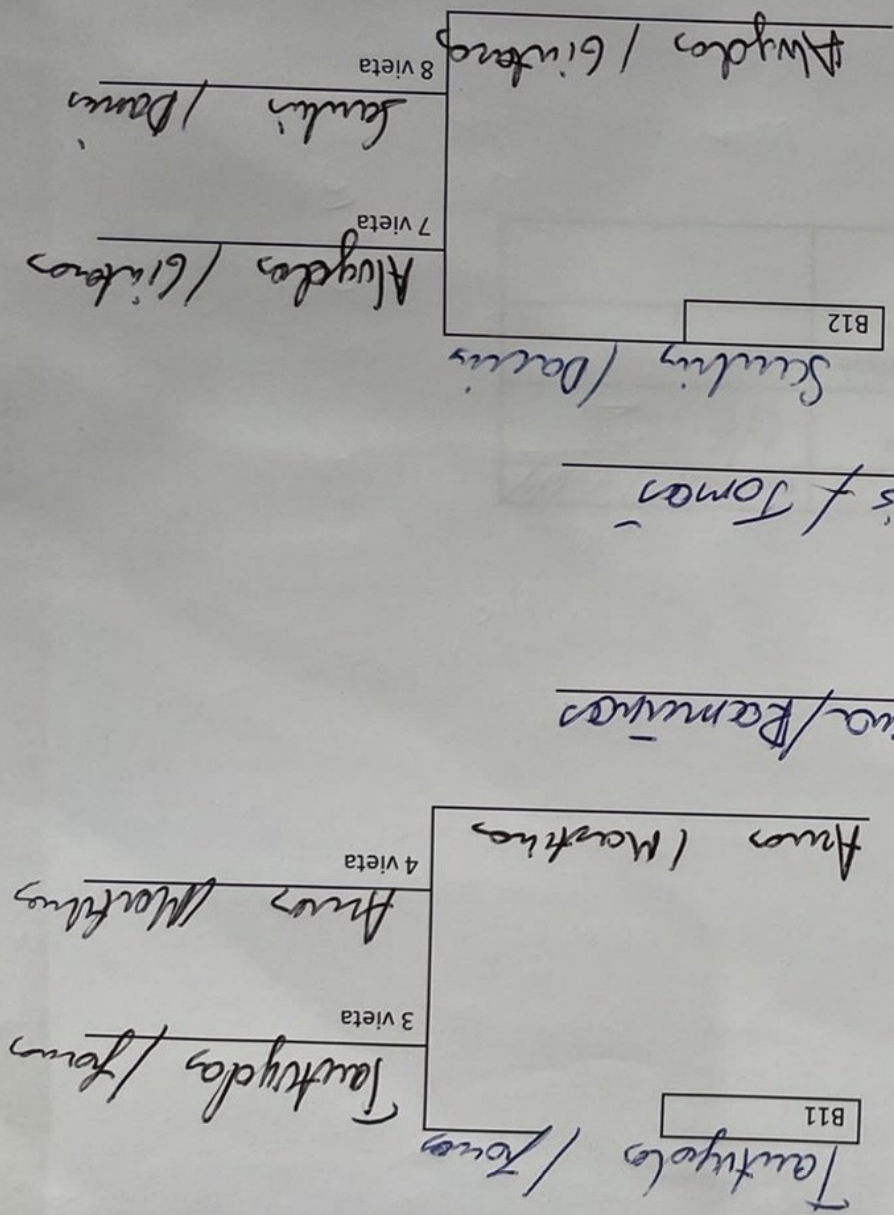 Tautvydas / Jonas
B11
Tautvydas / Jonas
3 vieta
Arnas / Martinas
4 vieta
Arnas / Martinas
/ Ramūnas
/ Tomas
Saulius / Darius
B12
Alvydas / Gintaras
7 vieta
Saulius / Darius
8 vieta
Alvydas / Gintaras